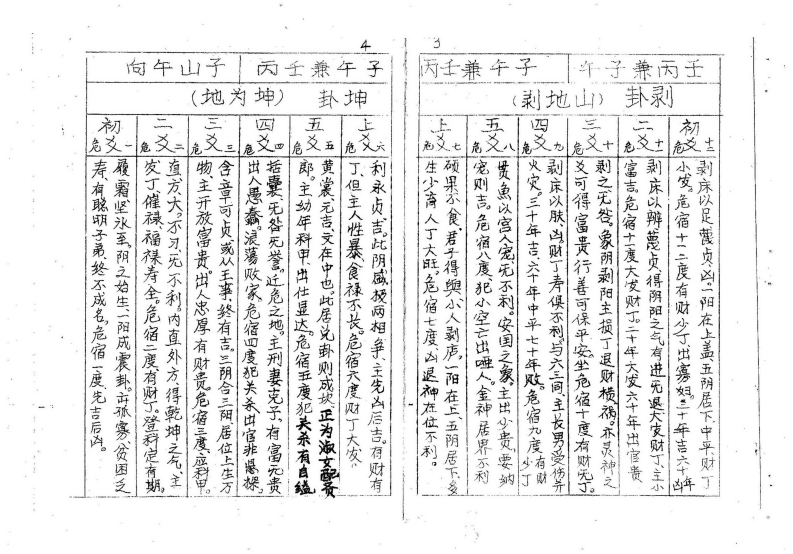 3
子午兼丙壬
丙壬兼午子
剥卦(山地剥)
初爻 危十二
剥床以足蔑贞凶。一阳在上盖五阴居下中平财丁
小发。危宿十一二度有财少丁、出寡妇。二十年吉六十年凶
二爻 危十一
剥床以辨蔑贞得阴阳之气有进无退大发财丁、主小
富吉。危宿十一度大发财丁。二十年大发六十年出官贵
三爻 危十
剥之无咎。象阴剥阳主损丁退财横祸。亦灵神之
爻可得富贵行善可保平安。坐危宿十度有财无丁。
四爻 危九
剥床以肤凶。财丁寿俱不利。与六三同、主长男受伤并
火灾。三十年吉、六十年中平七十年败。危宿九度有财少丁
五爻 危八
贯鱼以宫人宠无不利。安国之象、主出少贵、要纳
宠则吉。危宿八度、犯小空亡出哑人。金神居界不利
上爻 危七
硕果不食、君子得舆小人剥庐。一阳在上、五阴居下多
生少育人丁大旺。危宿七度凶退神在位不利。
4
丙壬兼午子
向午山子
坤卦(坤为地)
上爻 危六
利永贞吉。此阴盛极两相争、主先凶后吉。有财有
丁、但主人性暴食禄不长。危宿六度财丁大发、
五爻 危五
黄裳、元吉、文在中也。此居兑卦则成坎正为淑女配贵
郎。主幼年科甲出仕显达。危宿五度犯关杀有自缢
四爻 危四
括囊、无咎无誉。近危之地。主刑妻克子、有富无贵
出人愚蠢。浪荡败家、危宿四度犯关杀出官非
三爻 危三
含章可贞或从王事、终有吉。三阴合三阳居位上生万
物主开放富贵。出人忠厚有财贵危宿三度、应科甲。
二爻 危二
直方大。不习、无不利。内直外方、得乾坤之气、主
发丁催禄、福禄寿全。危宿二度、有财丁。登科定有期。
初爻 危一
履霜坚冰至。阴之始生、一阳成震卦。主孤寡、贫困乏
寿有聪明子弟、终不成名、危宿一度先吉后凶。